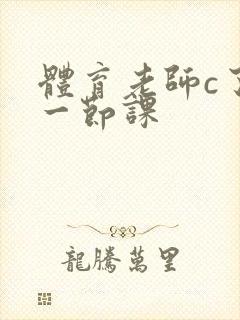 體育老師c了
一節課
龍騰萬里